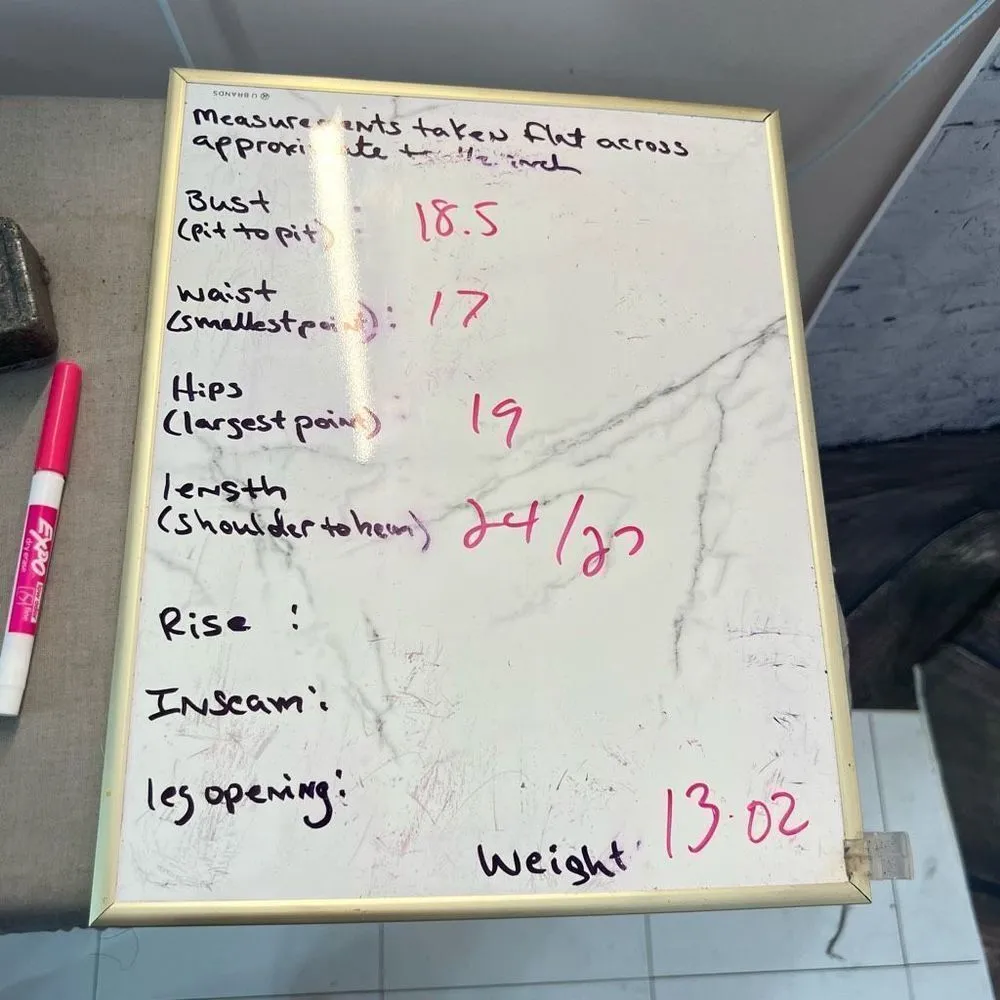 U BRANDS
Measurements taken flat across
approximate to 1/2 inch
Bust
(pit to pit) : 18.5
waist
(smallest point) : 17
Hips
(largest point) : 19
length
(shoulder to hem) 24/27
Rise :
Inseam :
leg opening :
Weight : 13.02
EXPO
dry erase
fine